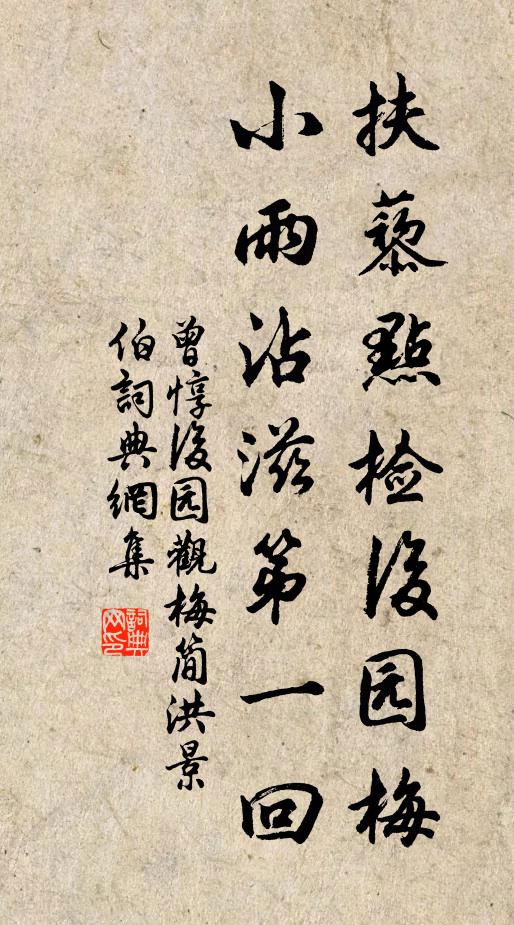 扶藜點检後园梅
小雨沾滋第一回
曾惇後园觀梅简洪景
伯詞典網集
詞典
网印